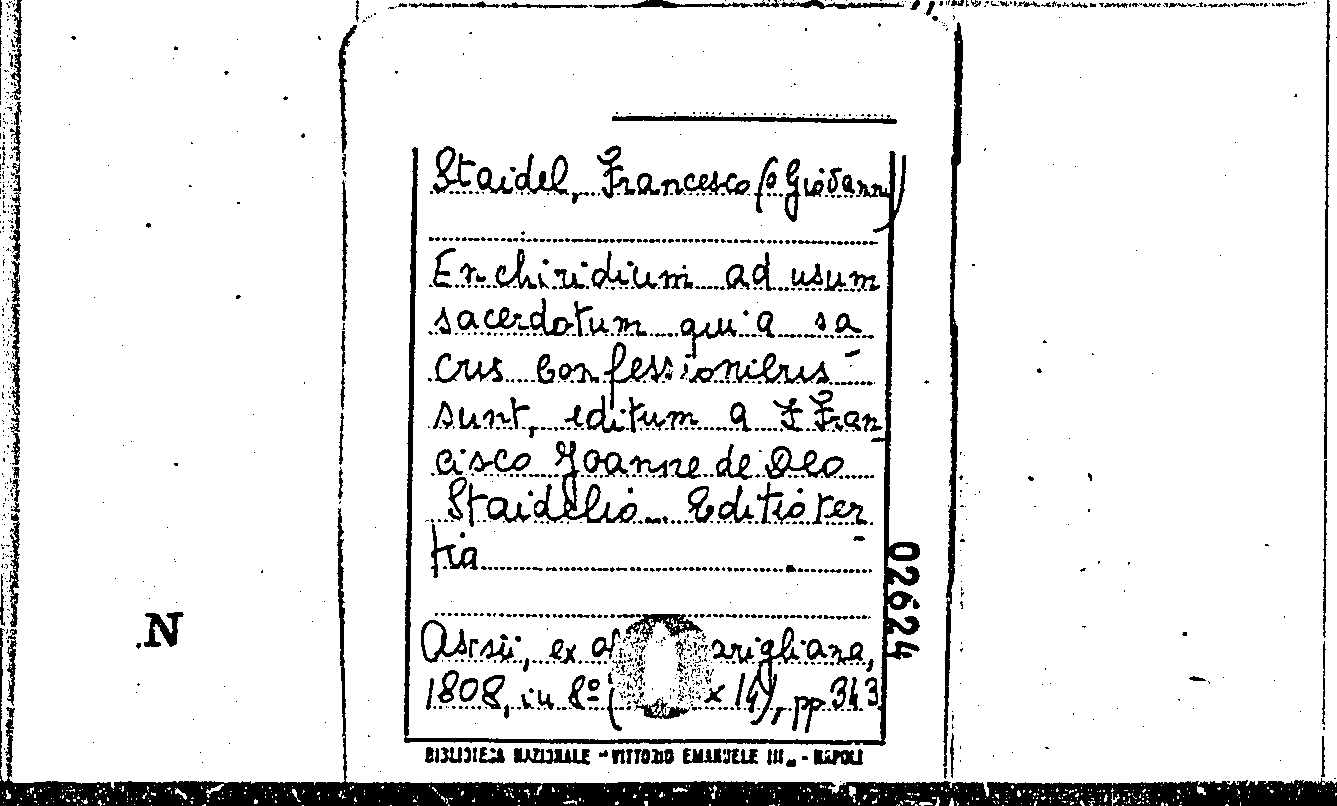 Staidel, Francesco (o Giovanni)
Enchiridium ad usum
sacerdotum qui a sa
cris Confessionibus -
sunt, editum a F. Fran
cisco Joanne de Deo
Staidelio... Editio ter
tia
Assisii, ex arigliana,
1808, in 8º ( x 14), pp 343
02624
N
BIBLIOTECA NAZIONALE "VITTORIO EMANUELE III" - NAPOLI